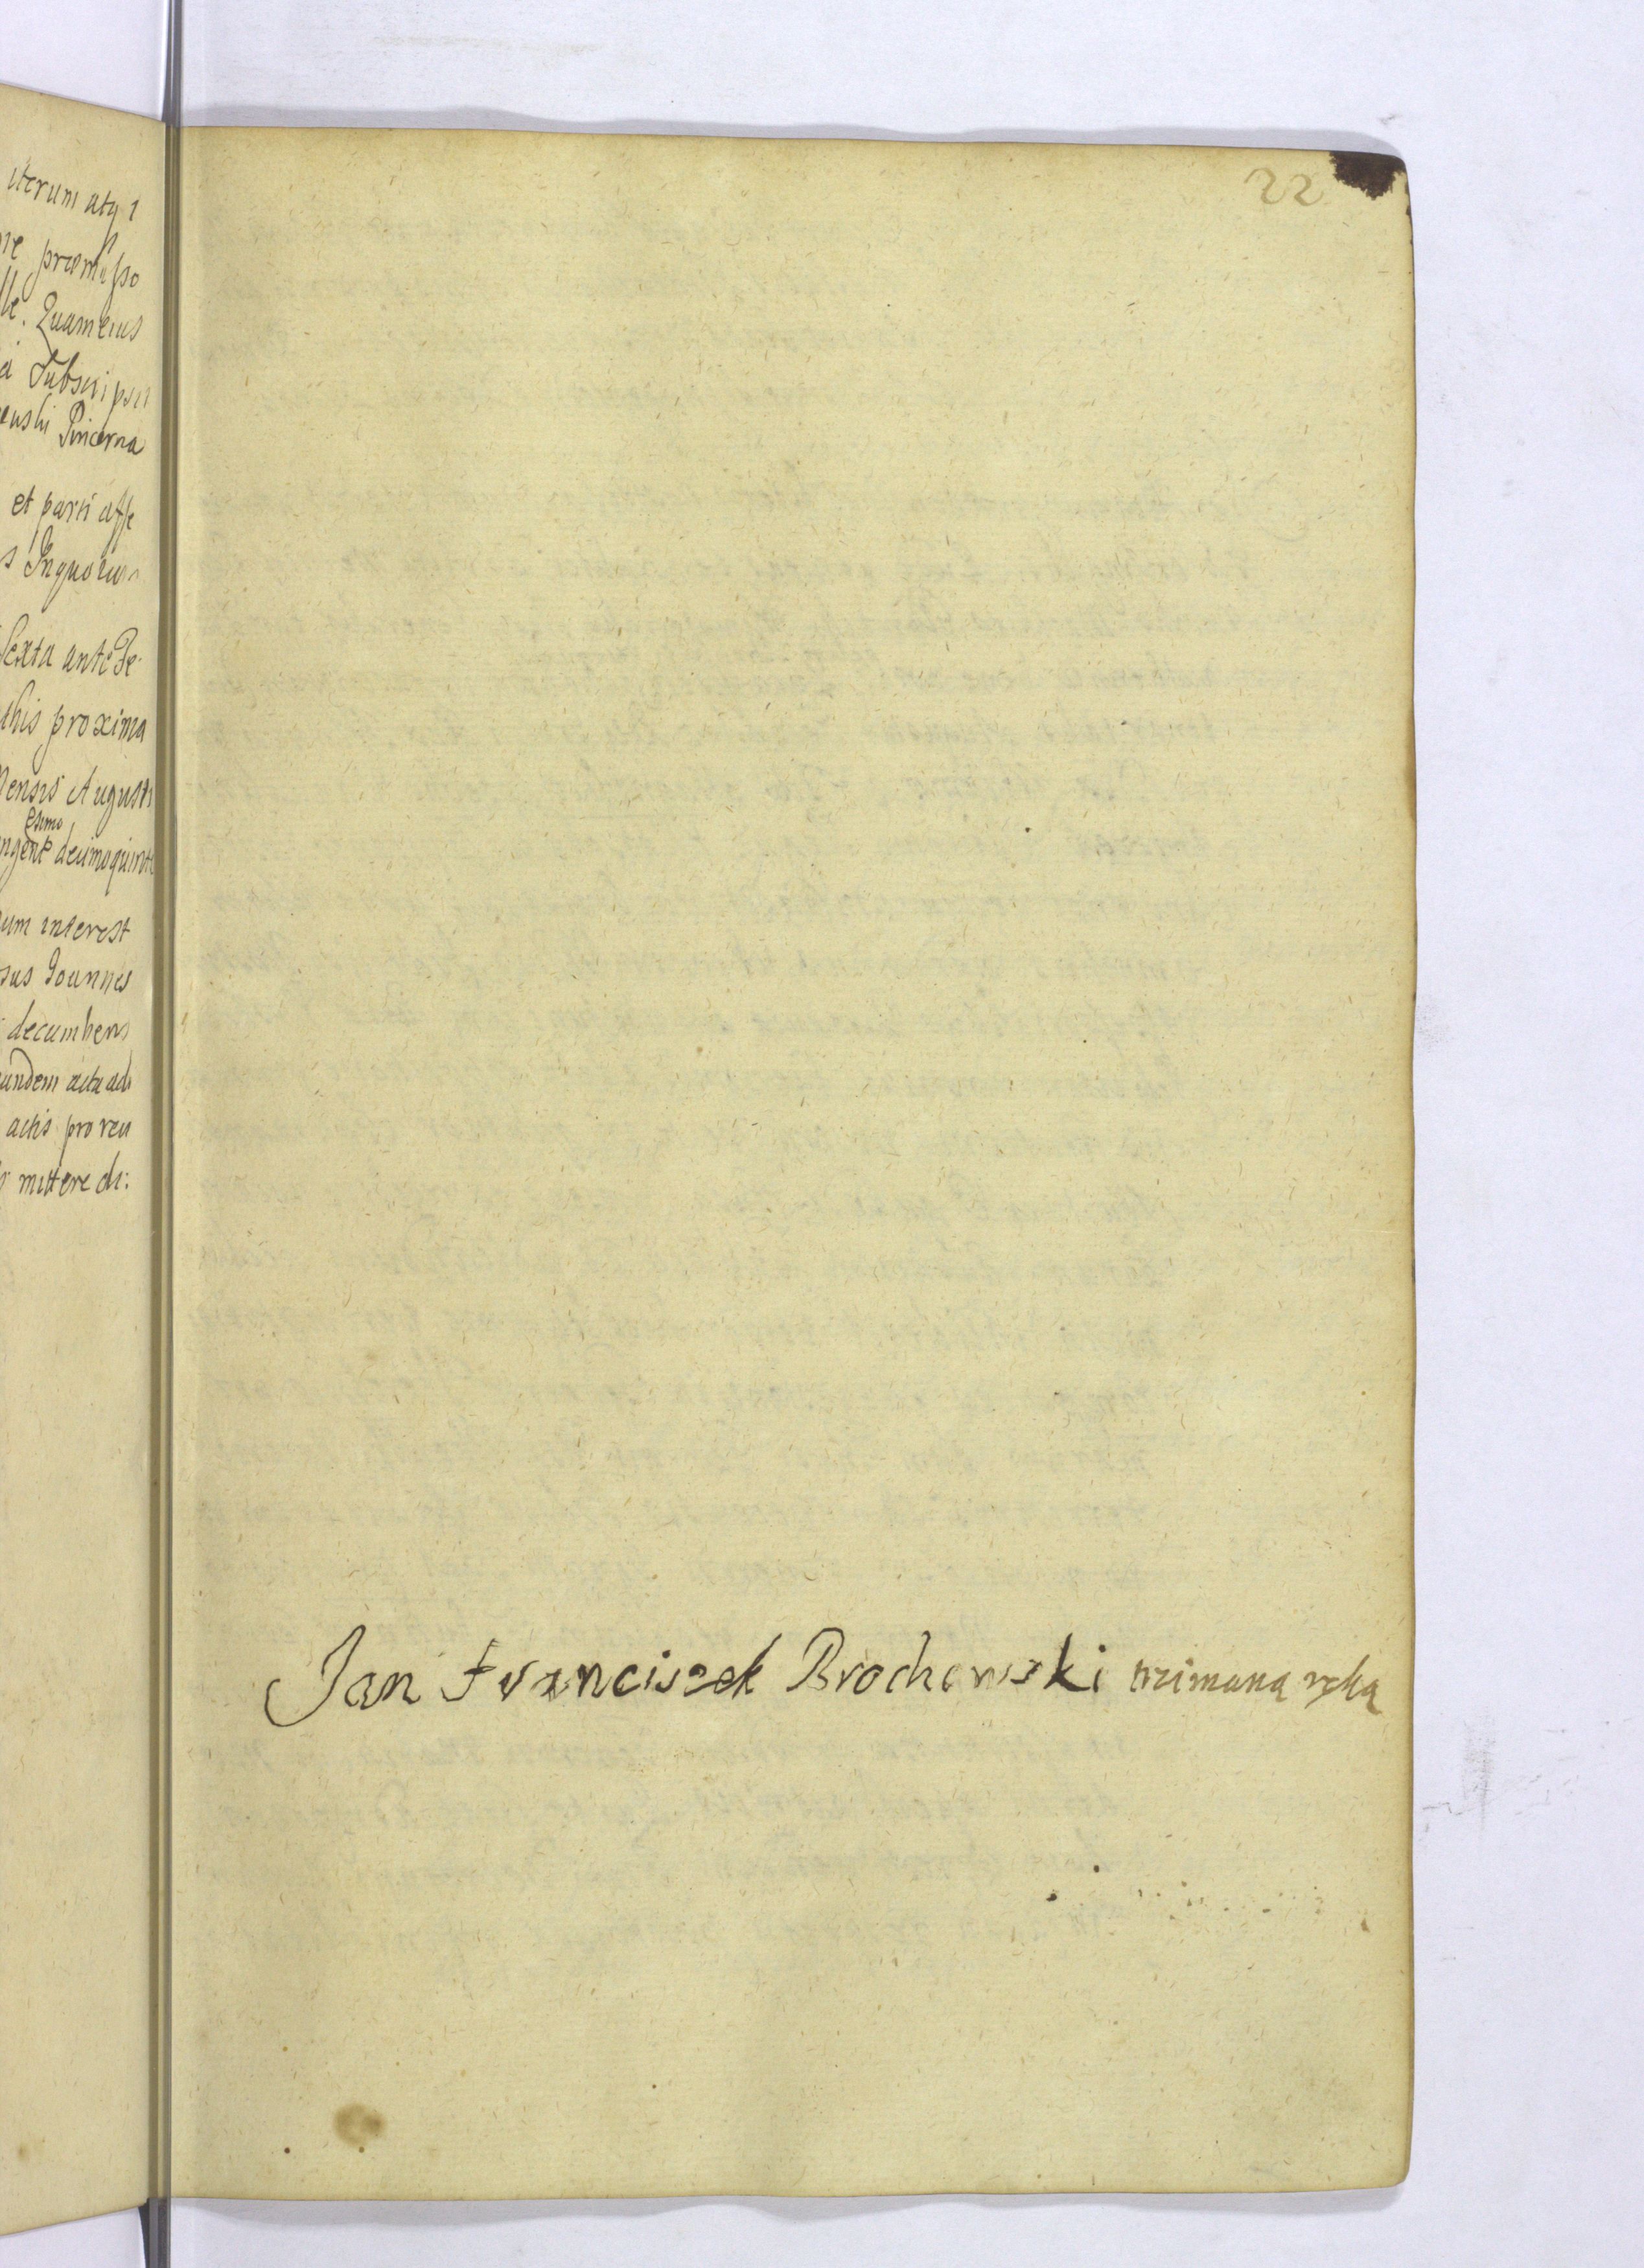 iterum atq 1
ne præmisso
lle. Quam eius
a Subscripsit
euski Pincerna
et parti affe
s Inquoru
Sexta ante Fe
this proxima
Mensis Augusti
esimo
ngent decimoquinto
um interest
sus Joannes
decumbens
eundem acta ad
actis pro reu
mittere di:
22
Jan Franciszek Brochowski trzimaną ręką